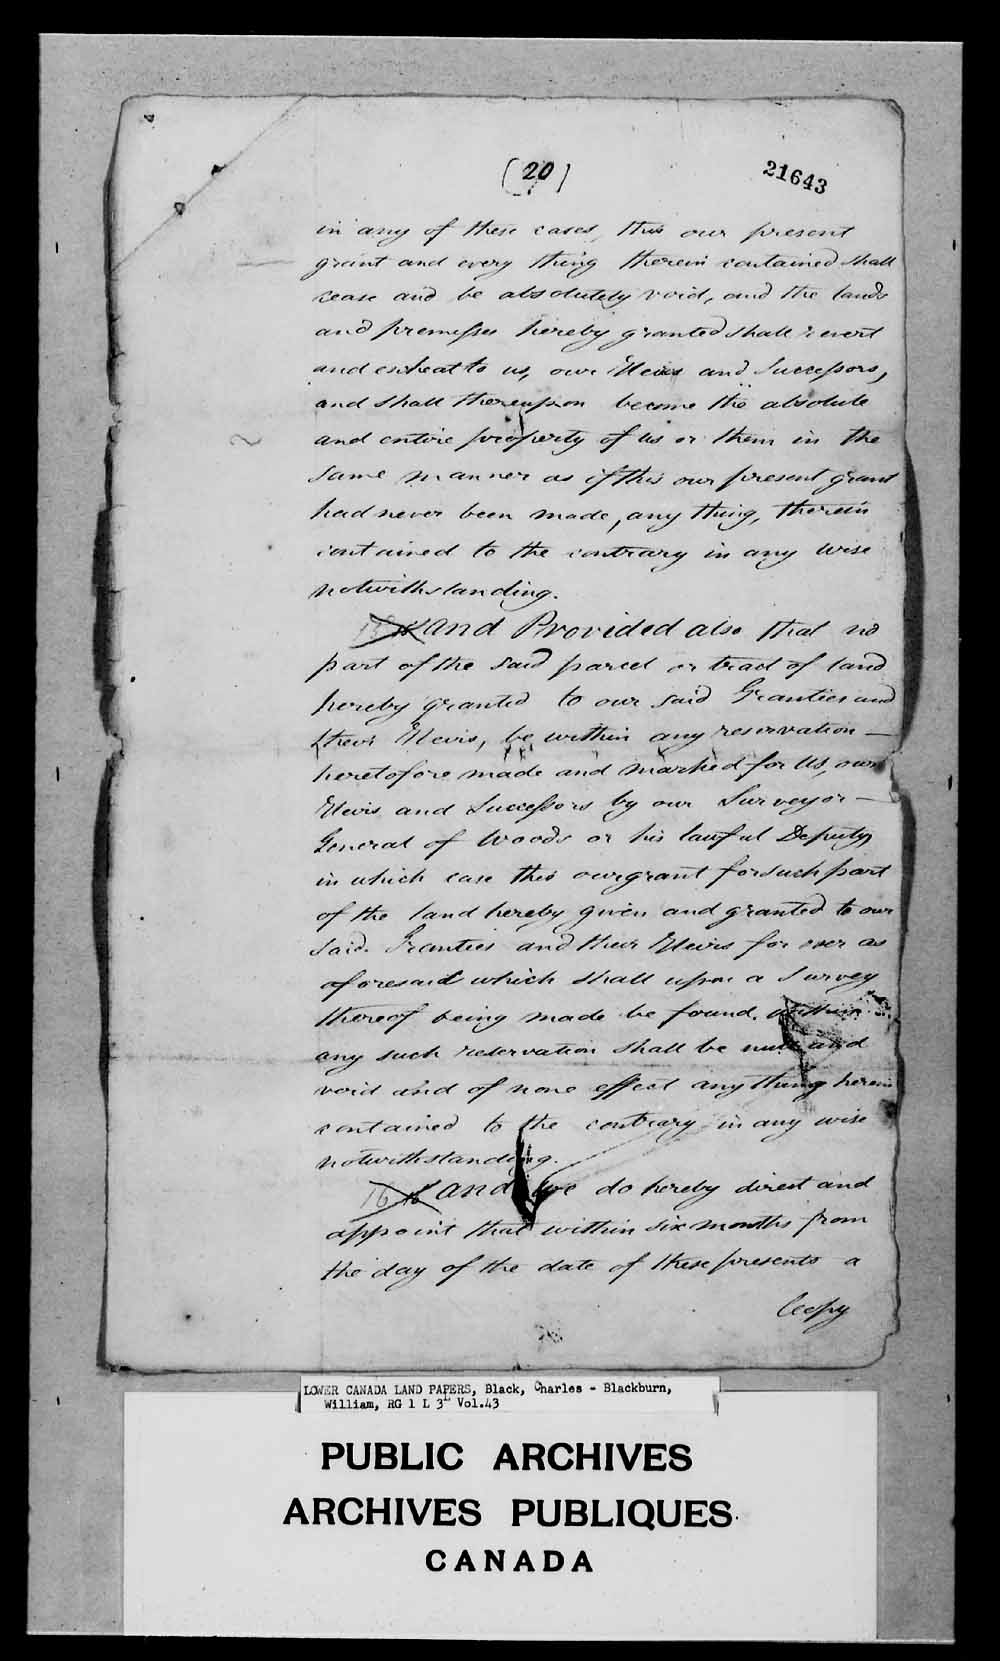 (20)
21643
in any of these cases, this our present
grant and every thing therein contained shall
cease and be absolutely void, and the lands
and premisses hereby granted shall revert
and escheat to us, our Heirs and Successors,
and shall thereupon become the absolute
and entire property of us or them in the
same manner as if this our present grant
had never been made, any thing, therein
contained to the contrary in any wise
notwithstanding.
And Provided also that no
part of the said parcel or tract of land
hereby granted to our said Grantees and
their Heirs, be within any reservation —
heretofore made and marked for Us, our
Heirs and Successors by our Surveyor —
General of Woods or his lawful Deputy,
in which case this our grant for such part
of the land hereby given and granted to our
said Grantees and their Heirs for ever as
aforesaid which shall upon a Survey
thereof being made be found, within
any such reservation shall be null and
void and of none effect any thing herein
contained to the contrary in any wise
notwithstanding.
16 And We do hereby direct and
appoint that within six months from
the day of the date of these presents a
Copy
LOWER CANADA LAND PAPERS, Black, Charles - Blackburn,
William, RG 1 L 3L Vol.43
PUBLIC ARCHIVES
ARCHIVES PUBLIQUES
CANADA